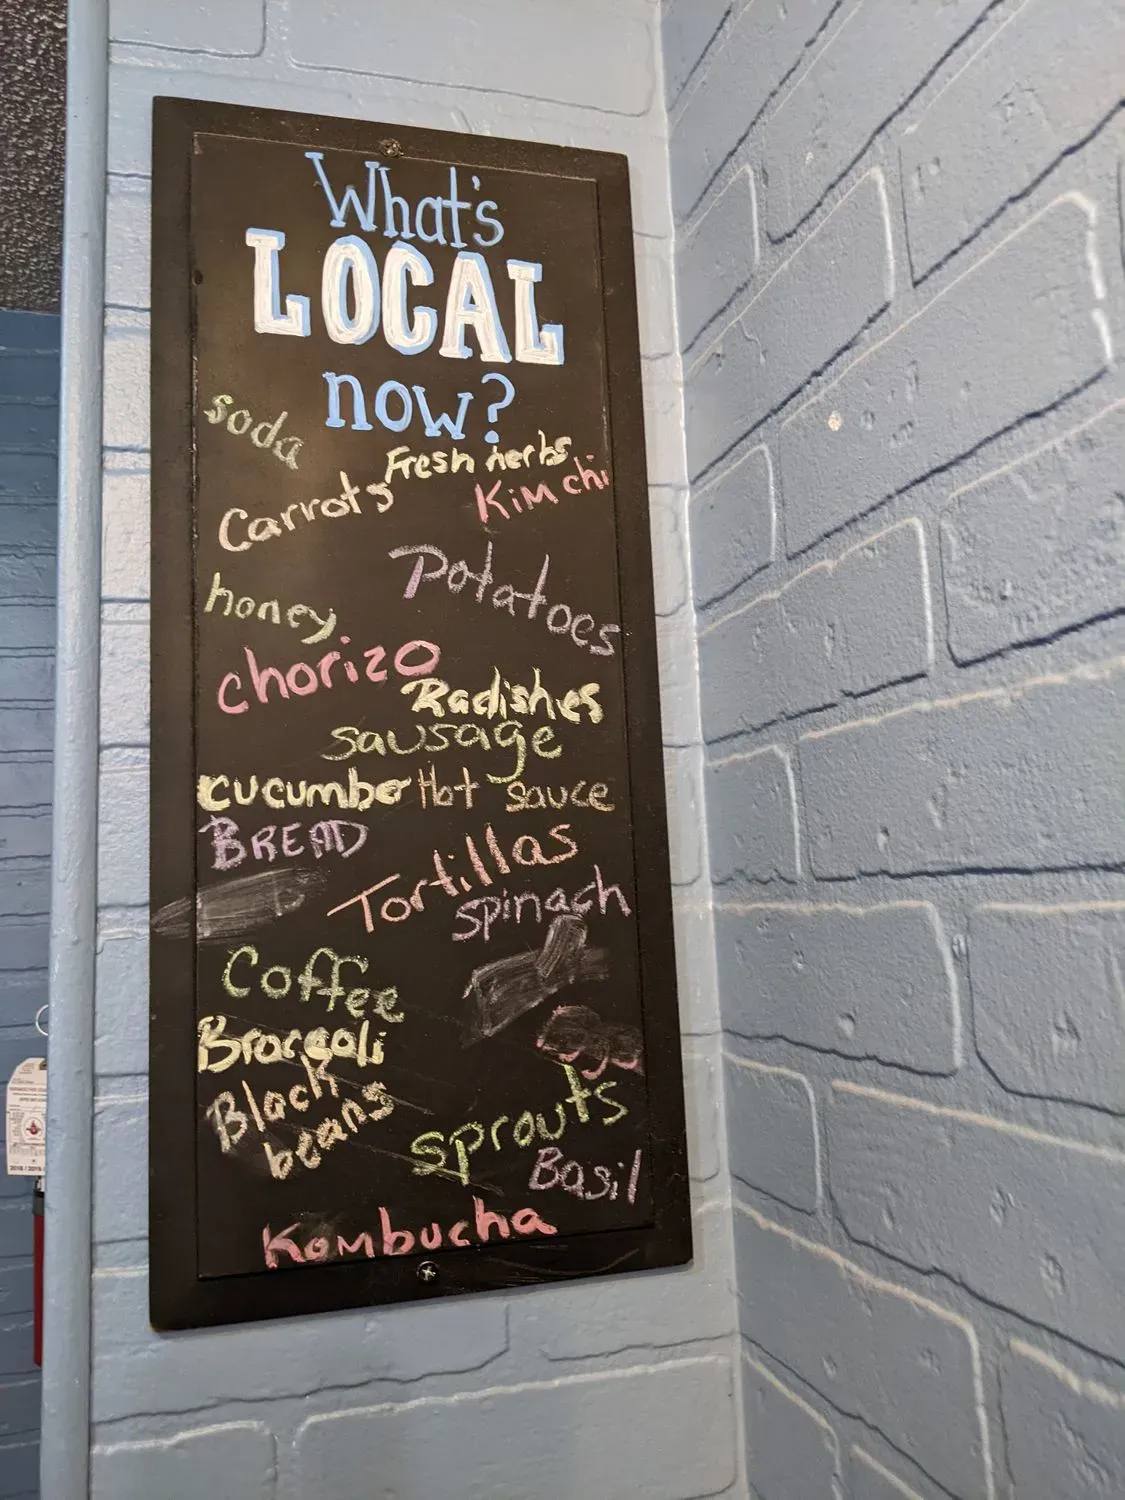 What's
LOCAL
now?
soda
Fresh herbs
Carrots
Kimchi
Potatoes
honey
chorizo
Radishes
sausage
cucumber
Hot sauce
BREAD
Tortillas
spinach
Coffee
Broccoli
Eggs
Black
beans
sprouts
Basil
Kombucha